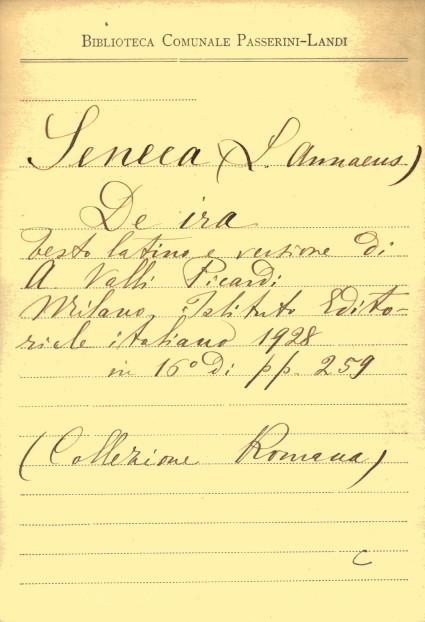 BIBLIOTECA COMUNALE PASSERINI-LANDI
Seneca (L. Annaeus)
De ira
testo latino e versione di
A Valli Picardi
Milano, Istituto Edito-
riale italiano 1928
in 16° di pp. 259
(Collezione Romana)
C